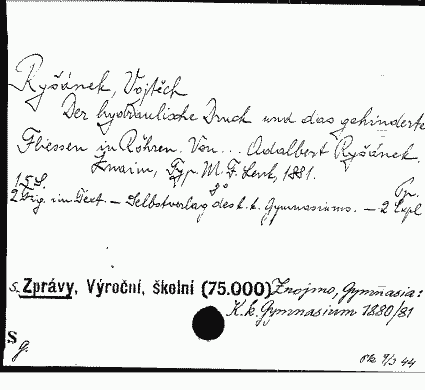 Ryšánek, Vojtěch
Der hydraulische Druck und das gehinderte
Fliessen in Röhren. Von... Adalbert Ryšánek.
Znaim, Typ. M. F. Lenk, 1881.
8°
2 Fig. im Text. – Selbstverlag des k. k. Gymnasiums. – 2 Expl
s. Zprávy, Výroční, školní (75.000) Znojmo, Gymnasia:
K. k. Gymnasium 1880/81
S
g.